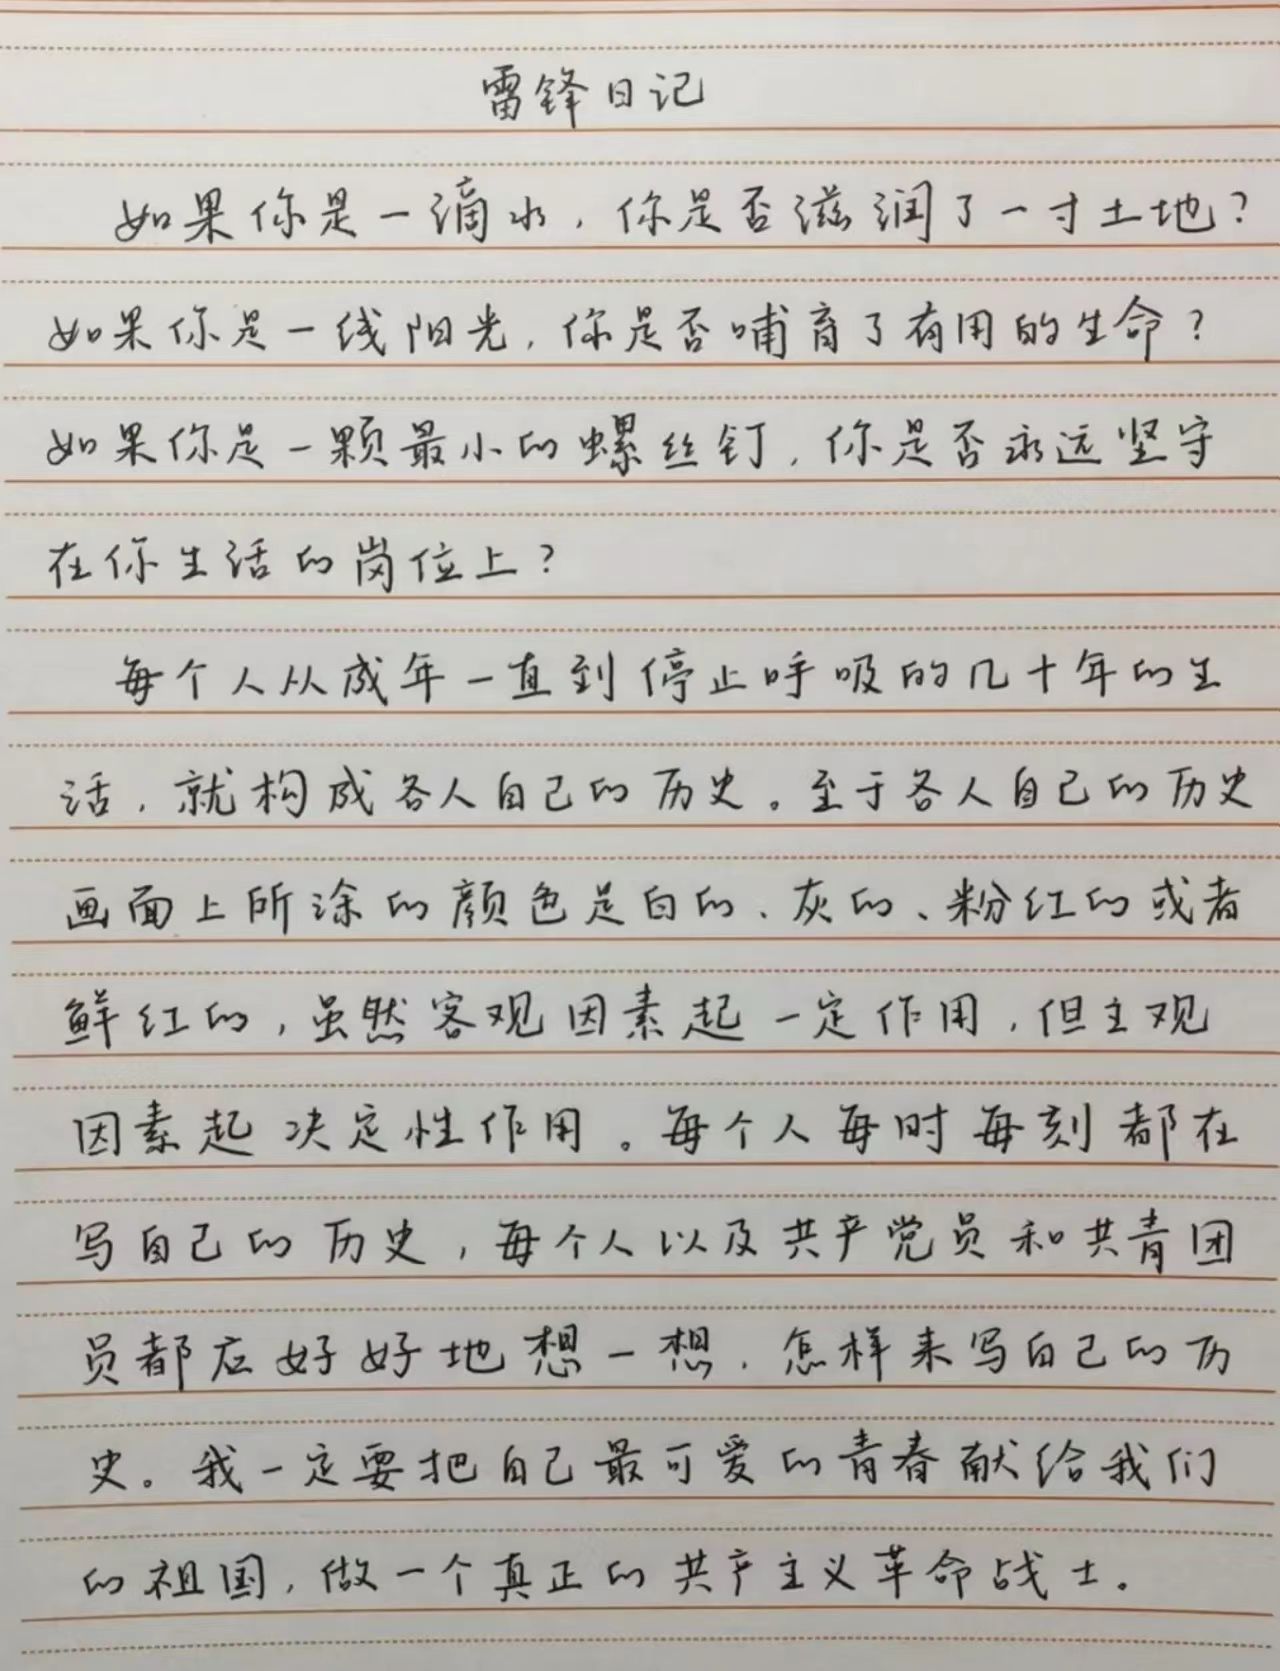 雷锋日记
如果你是一滴水，你是否滋润了一寸土地？
如果你是一线阳光，你是否哺育了有用的生命？
如果你是一颗最小的螺丝钉，你是否永远坚守
在你生活的岗位上？
每个人从成年一直到停止呼吸的几十年的生
活，就构成各人自己的历史。至于各人自己的历史
画面上所涂的颜色是白的、灰的、粉红的或者
鲜红的，虽然客观因素起一定作用，但主观
因素起决定性作用。每个人每时每刻都在
写自己的历史，每个人以及共产党员和共青团
员都应好好地想一想，怎样来写自己的历
史。我一定要把自己最可爱的青春献给我们
的祖国，做一个真正的共产主义革命战士。